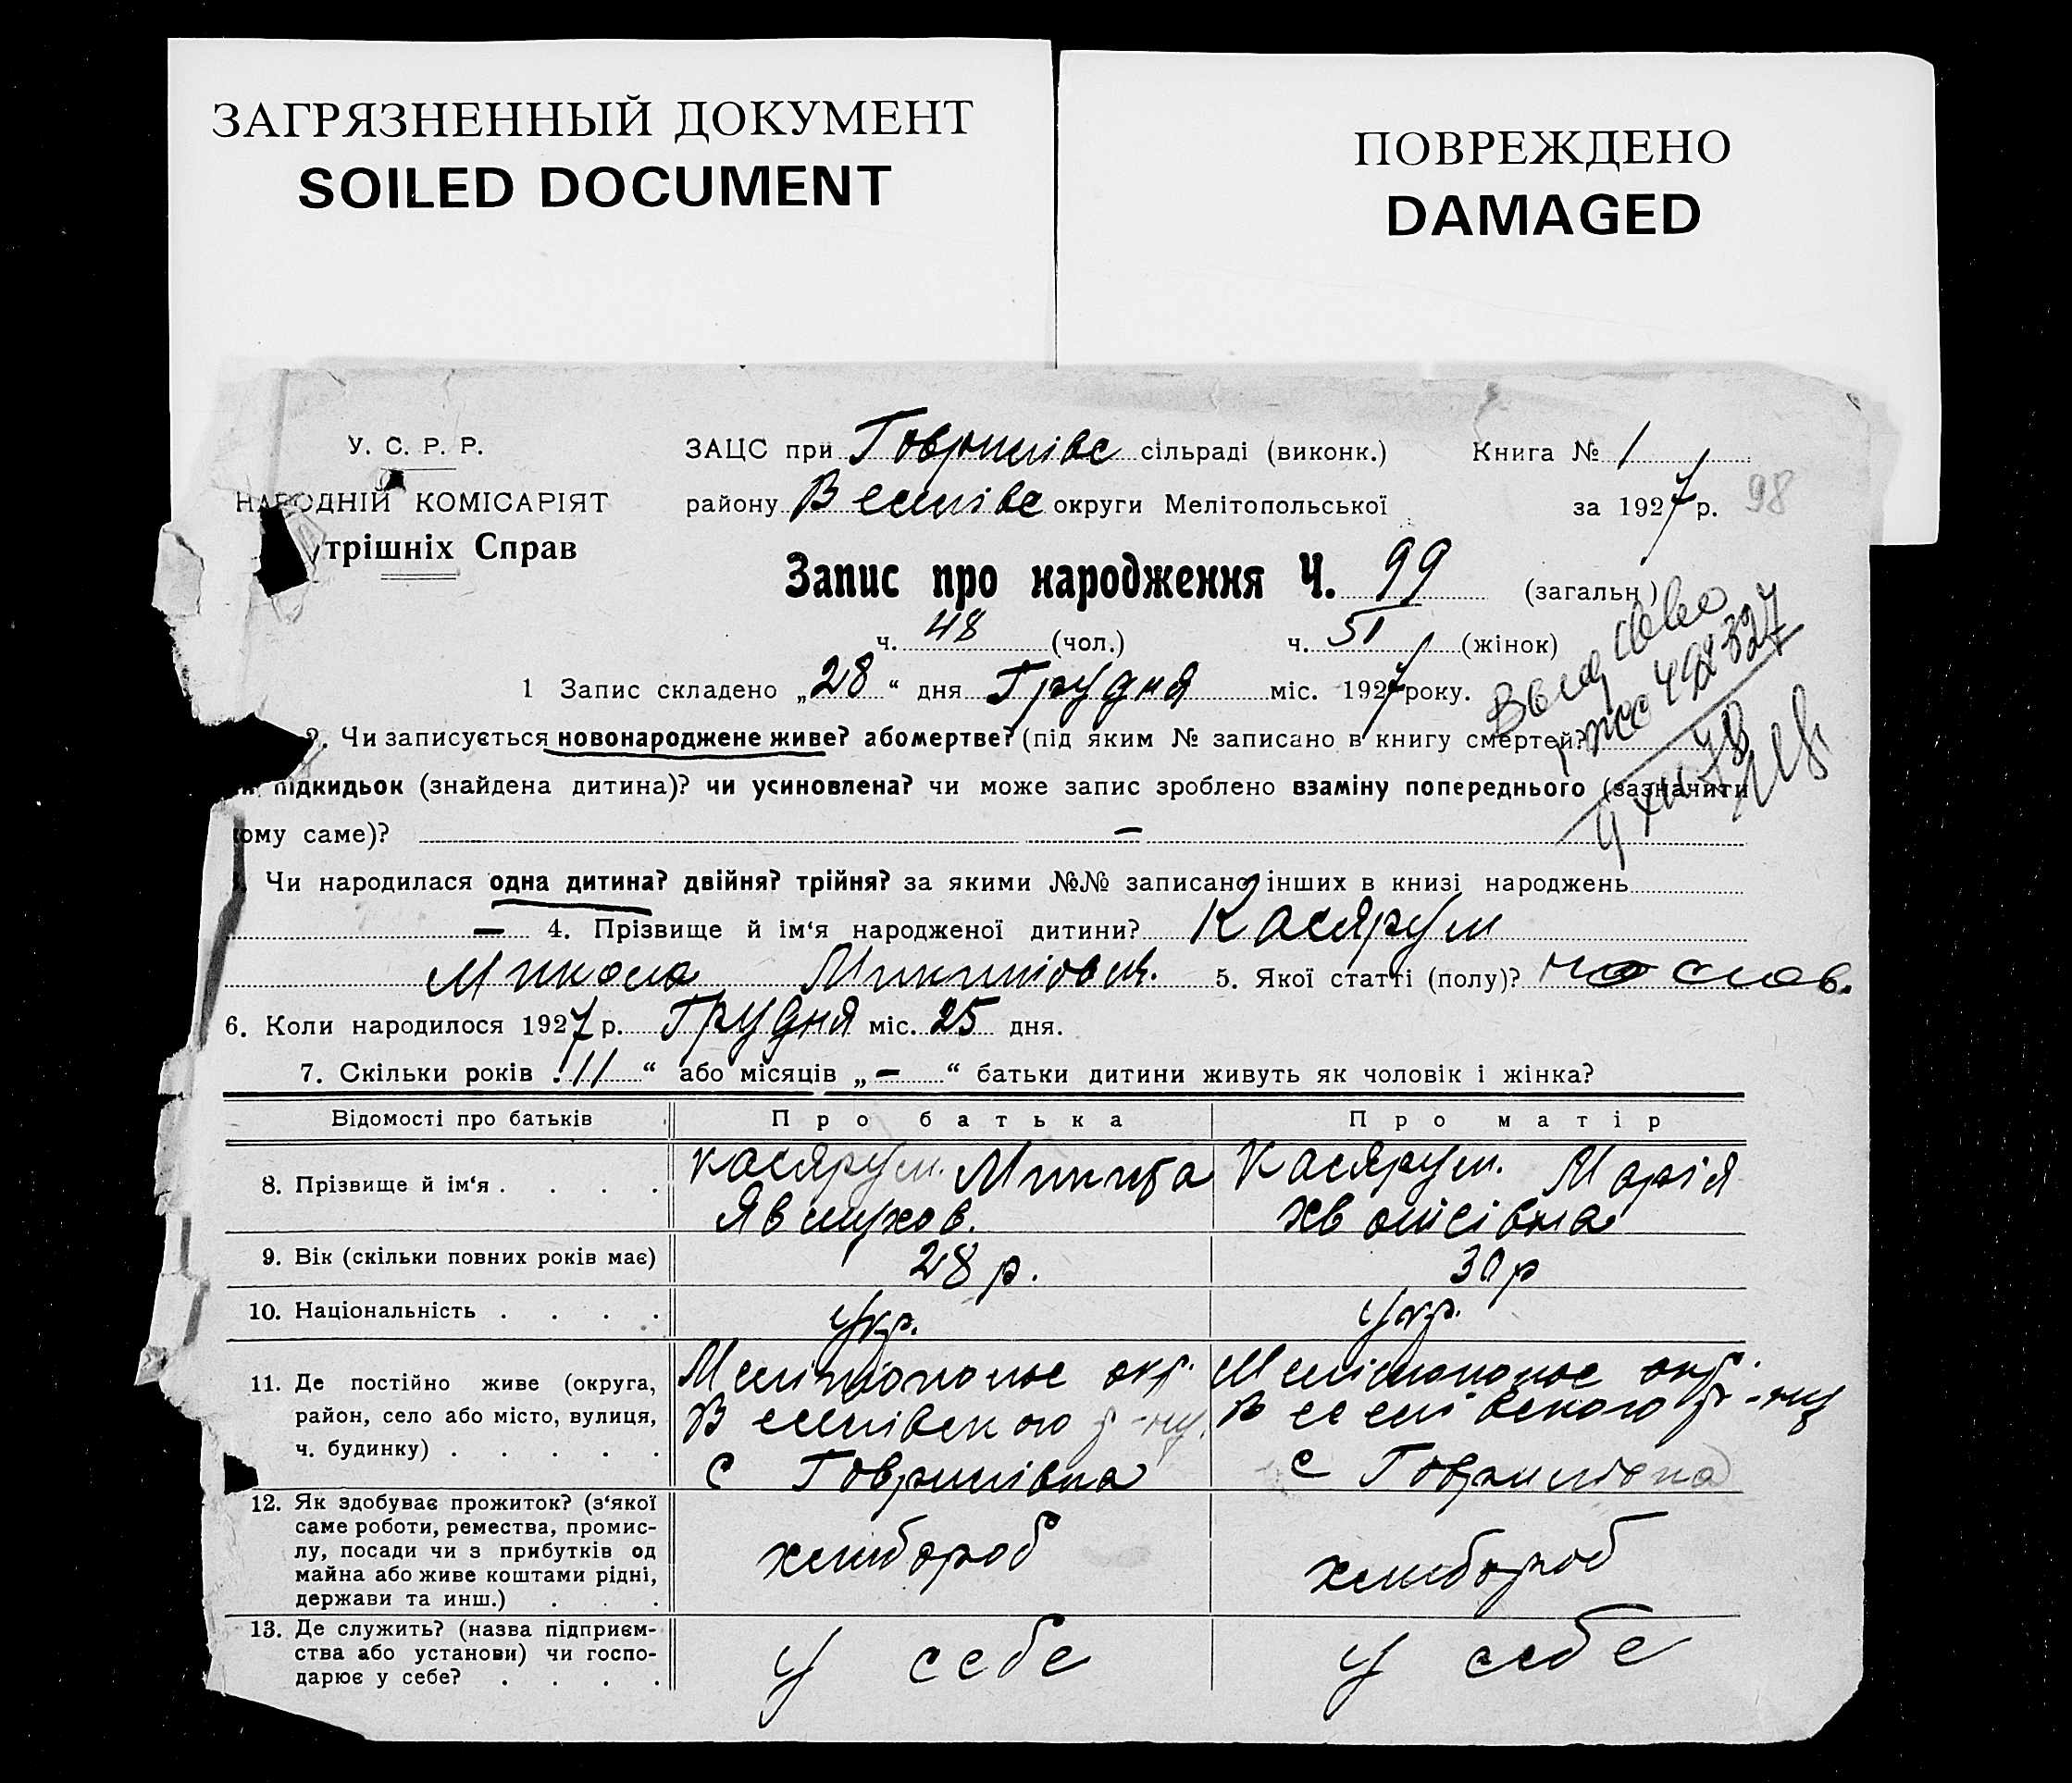 ЗАГРЯЗНЕННЫЙ ДОКУМЕНТ
SOILED DOCUMENT
ПОВРЕЖДЕНО
DAMAGED
У. С. Р. Р.
НАРОДНІЙ КОМІСАРІЯТ
трішніх Справ
ЗАЦС при Говрилівс сільраді (виконк.) Книга № 1
району Веселівс округи Мелітопольської за 1927 р. 98
Запис про народження Ч. 99 (загальн)
ч. 48 (чол.) ч. 51 (жінок)
1 Запис складено „28“ дня Грудня міс. 1927 року.
2. Чи записується новонароджене живе? або мертве? (під яким № записано в книгу смертей?
підкидьок (знайдена дитина)? чи усиновлена? чи може запис зроблено взаміну попереднього (зазначити
ому саме)? —
Чи народилася одна дитина? двійня? трійня? за якими №№ записано інших в книзі народжень
— 4. Прізвище й ім‘я народженої дитини?
Микола Микитович. 5. Якої статті (полу)?
6. Коли народилося 1927 р. Грудня міс. 25 дня.
7. Скільки років „11“ або місяців „—“ батьки дитини живуть як чоловік і жінка?
Відомості про батьків Про батька Про матір
8. Прізвище й ім‘я . . . . Микита Марія
9. Вік (скільки повних років має) 28 р. 30 р
10. Національність . . . . Укр. Укр.
11. Де постійно живе (округа, Мелітопольс окр. Мелітопольс окр.
район, село або місто, вулиця, Веселівського р-ну. Веселівського р-ну
ч. будинку) . . . . . с Говрилівка с Говрилівка
12. Як здобуває прожиток? (з‘якої
саме роботи, ремества, промис-
лу, посади чи з прибутків од хлібороб хлібороб
майна або живе коштами рідні,
держави та инш.) . . .
13. Де служить? (назва підприєм-
ства або установи) чи госпо- у себе у себе
дарює у себе? . . . .